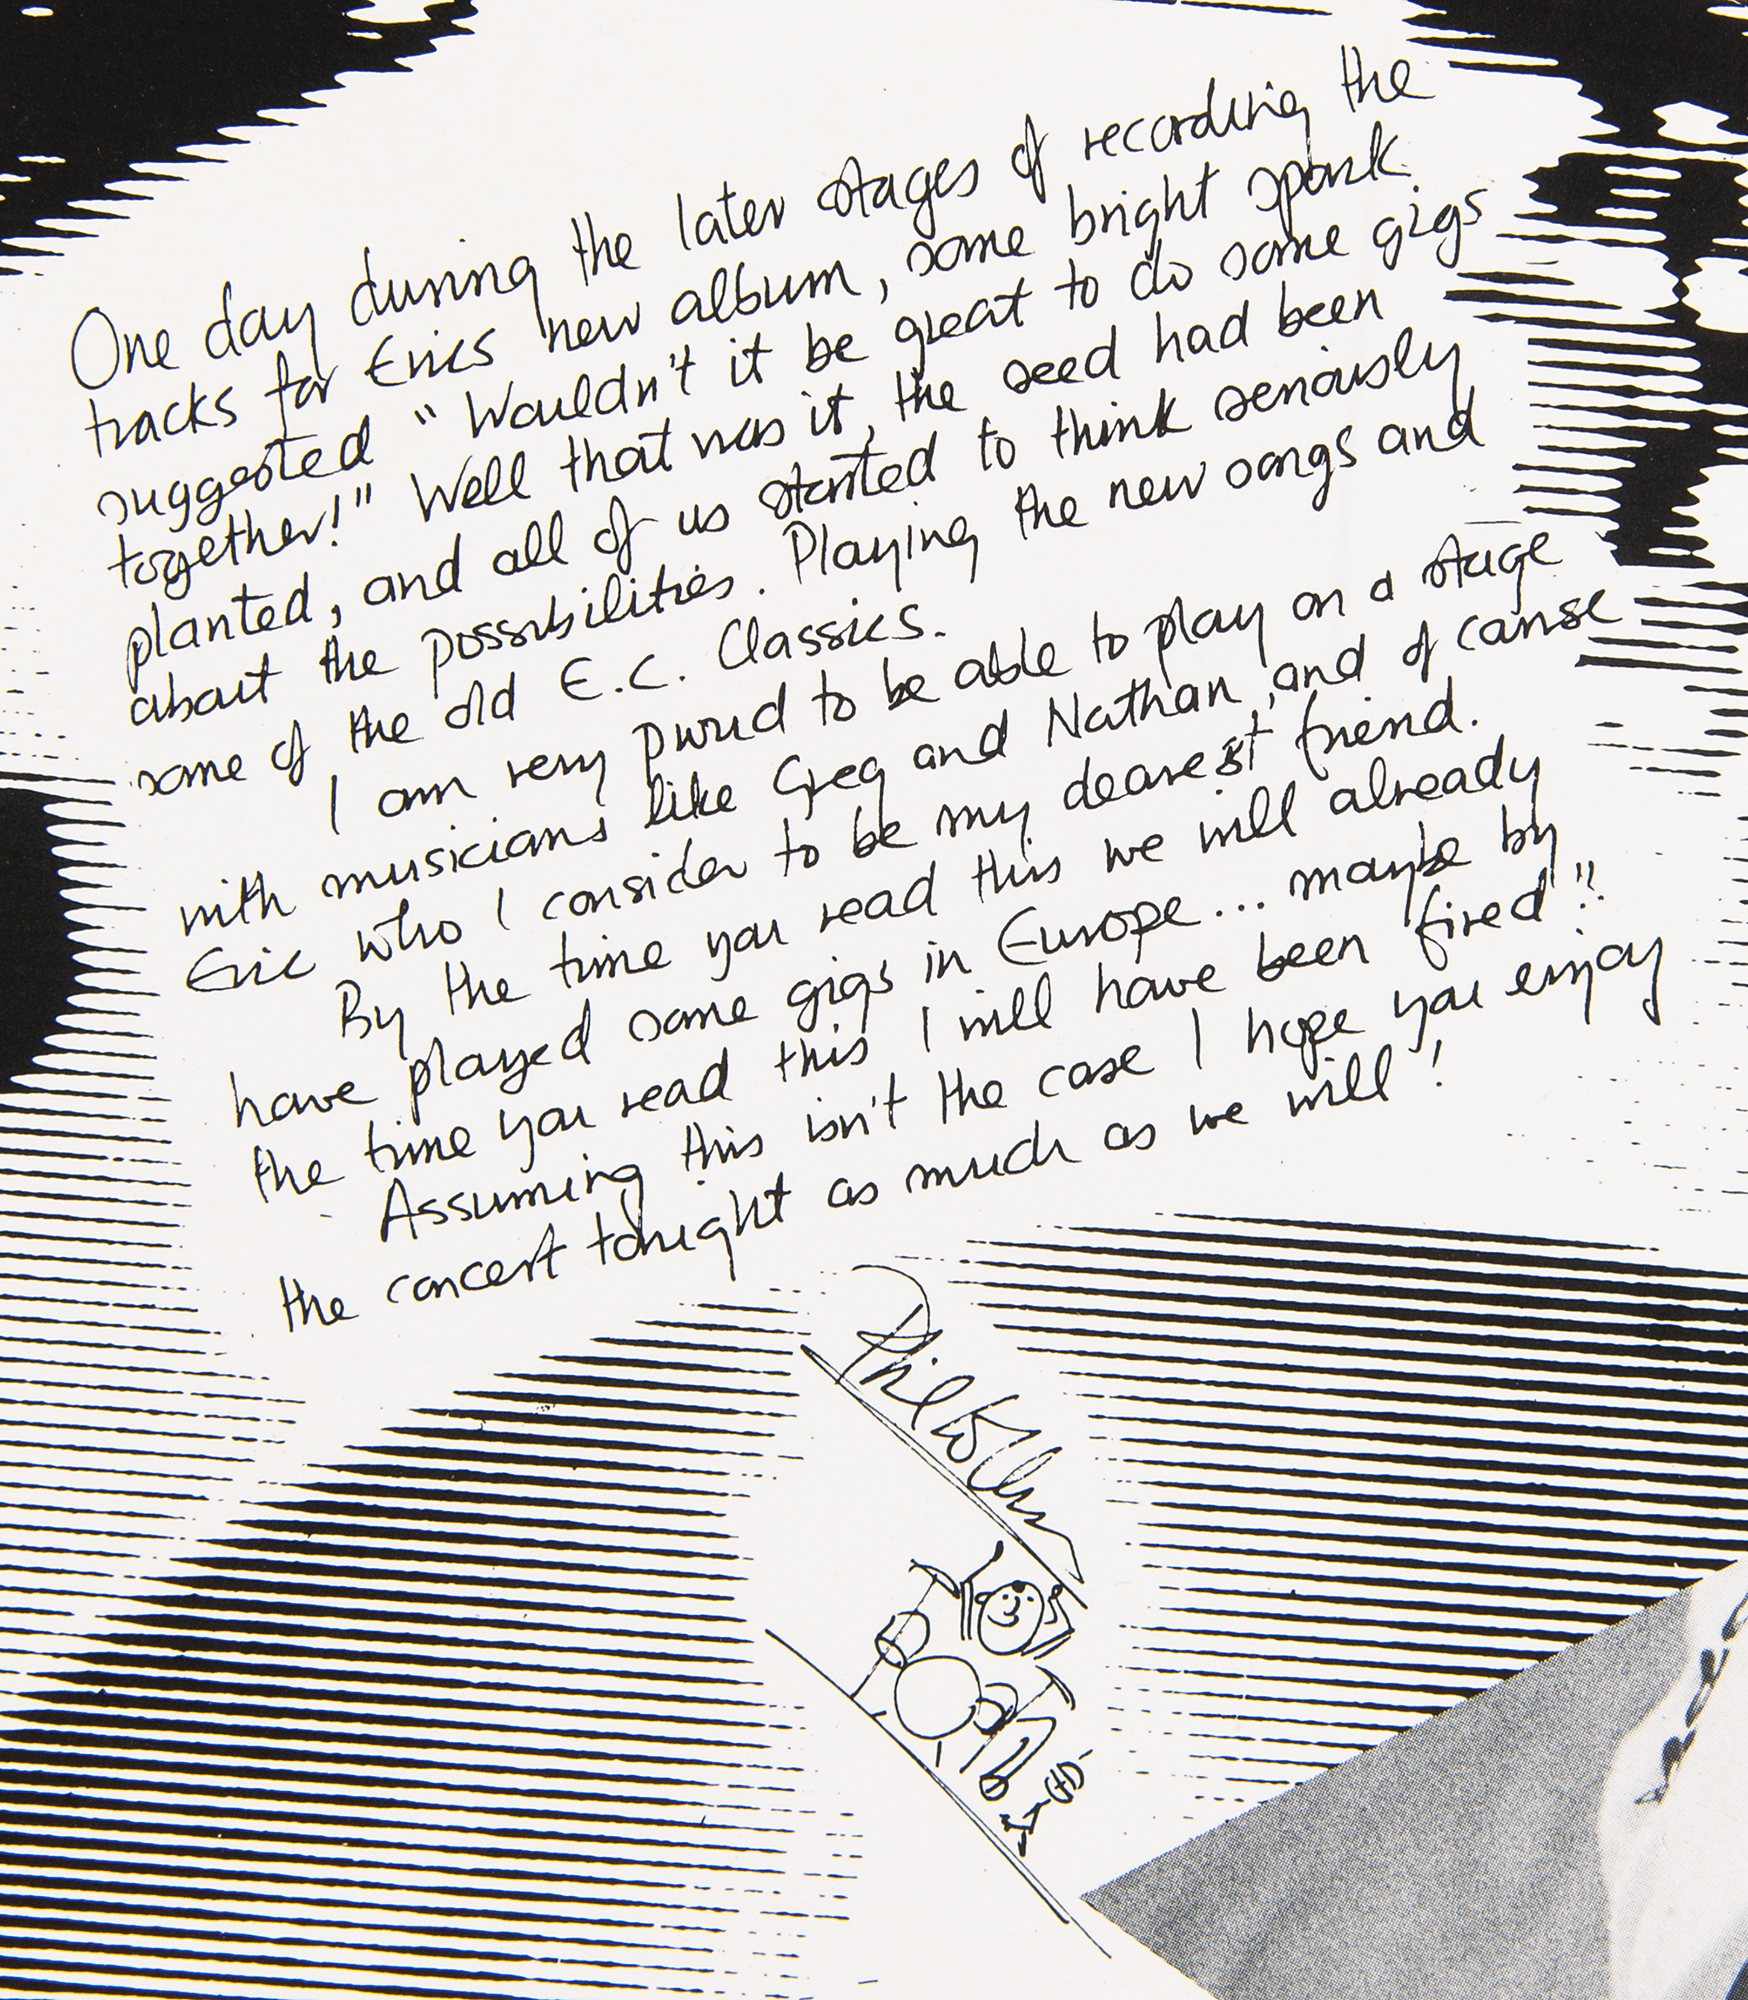 One day during the later stages of recording the
tracks for Erics new album, some bright spark
suggested "Wouldn't it be great to do some gigs
together!" Well that was it, the seed had been
planted, and all of us started to think seriously
about the possibilities. Playing the new songs and
some of the old E.C. Classics.
I am very proud to be able to play on a stage
with musicians like Greg and Nathan, and of course
Eric who I consider to be my dearest friend.
By the time you read this we will already
have played some gigs in Europe... maybe by
the time you read this I will have been fired!!
Assuming this isn't the case I hope you enjoy
the concert tonight as much as we will!
Phil Collins